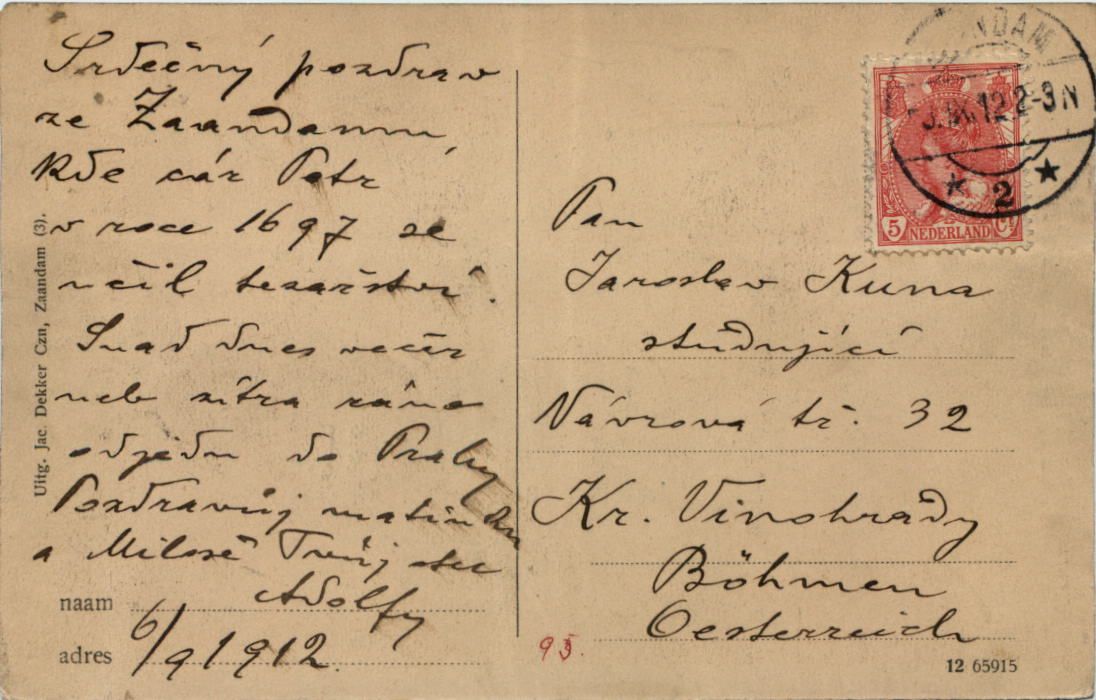 Srdečný pozdrav
ze Zaandamu,
kde cár Petr
v roce 1697 se
učil tesařství.
Snad dnes večer
neb zítra ráno
odjedu do Prahy
Pozdravuj matinku
a Miloše Tvůj otec
Adolf
naam
adres 6/9 1912.
Uitg. Jac. Dekker Czn, Zaandam (3).
NDAM
.12 2-3N
2
5 NEDERLAND Ct
Pan
Jaroslav Kuna
studující
Vávrová tř. 32
Kr. Vinohrady
Böhmen
Oesterreich
95.
12 65915